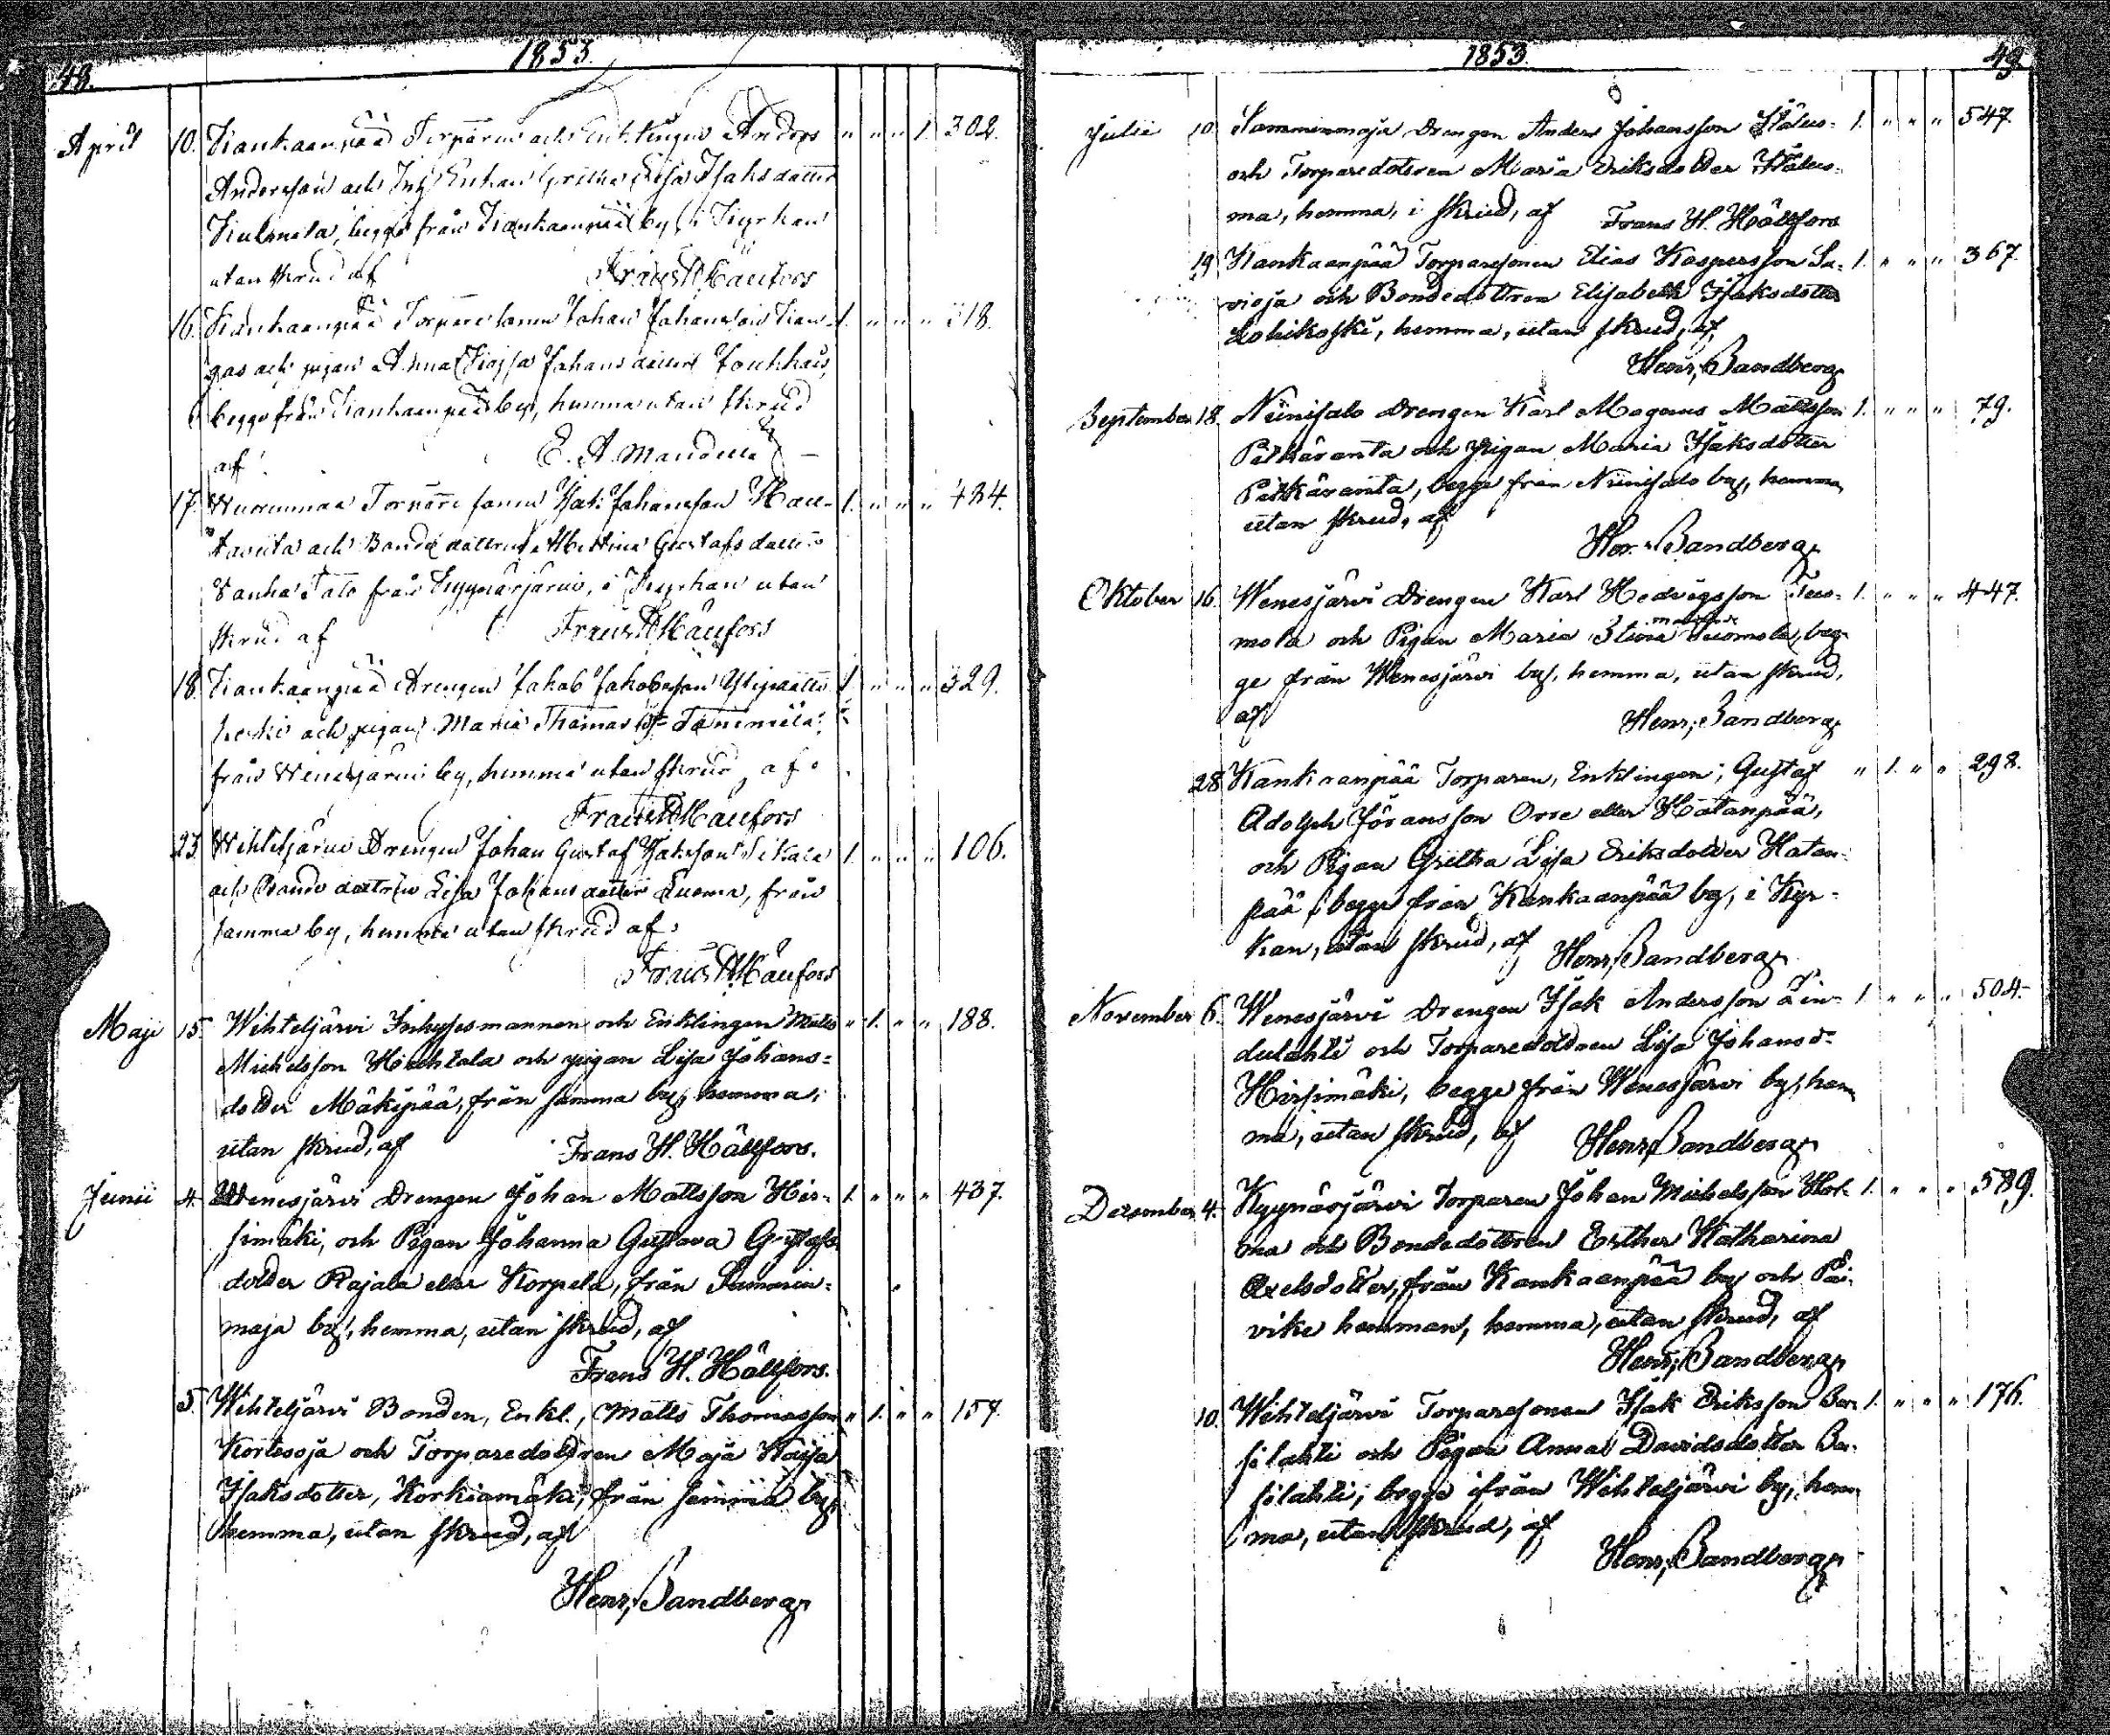 48.
1853.
April 10. Kankaanpää Torparen och Enklingen Anders " " " 1. 302.
Andersson och Inh. Enkan Gretha Lisa Isaksdotter
begge från Kankaanpää by, i Kyrkan
utan skrud af Frans H. Hällfors
16. Kankaanpää Torpare sonen Johan Johansson Kan- 1. " " " 118.
gas och pigan Anna Kajsa Johansdotter
begge från Kankaanpää by, hemma utan skrud
af E. A. Mandell
17. Torpare sonen Isak Johansson 1. " " " 424.
och Bonde dottren Gustafs dotter
Vanha Talo från Kyynärjärvi, i Kyrkan utan
skrud af Frans H. Hällfors
18. Kankaanpää Drengen Jakob Jakobsson 1. " " " 329.
och pigan Maria Thomasd:r
från Wenesjärvi by, hemma utan skrud, af
Frans H. Hällfors
23. Wihteljärvi Drengen Johan Gustaf Isaksson 1. " " " 106.
och Bonde dottren Lisa Johans dotter Luoma, från
samma by, hemma utan skrud af
Frans H. Hällfors
Maji 15. Wihteljärvi Inhysesmannen och Enklingen Matts " 1. " " 188.
Michelsson Huhtala och pigan Lisa Johans-
dotter Mäkipää, från samma by, hemma,
utan skrud, af Frans H. Hällfors.
Junii 4. Wenesjärvi Drengen Johan Mattsson Hir- 1. " " " 437.
simäki, och Pigan Johanna Gustava Gustafs
dotter Rajala eller Korpela, från Sammin-
maja by, hemma, utan skrud, af
Frans H. Hällfors.
5. Wihteljärvi Bonden, Enkl., Matts Thomasson " 1. " " 157.
Kortesoja och Torparedottren Maja Kaisa
Isaksdotter, Korkiamäki, från samma by,
hemma, utan skrud, af
Henr. Sandberg
1853.
49.
Julii 10. Samminmaja Drengen Anders Johansson Ylälus- 1. " " " 547.
och Torparedottren Maria Eriksdotter Ylälus-
ma, hemma, i skrud, af Frans H. Hällfors
19 Kankaanpää Torparesonen Elias Kaspersson Sa- 1. " " " 367.
vioja och Bondedottren Elisabeth Isaksdotter
Lohikoski, hemma, utan skrud, af
Henr. Sandberg
September 18. Niinisalo Drengen Karl Magnus Mattsson 1. " " " 79.
Pitkäranta och Pigan Maria Isaksdotter
Pitkäranta, begge från Niinisalo by, hemma,
utan skrud, af
Henr. Sandberg
Oktober 16. Wenesjärvi Drengen Karl Hedvigsson Tuo- 1. " " " 447.
mola och Pigan Maria Stina Tuomola, beg-
ge från Wenesjärvi by, hemma, utan skrud,
af Henr. Sandberg
28 Kankaanpää Torparen, Enklingen, Gustaf " 1. " " 298.
Adolph Göransson Orre eller Hatanpää,
och Pigan Gretha Lisa Eriksdotter Hatan-
pää, begge från Kankaanpää by, i Kyr-
kan, utan skrud, af Henr. Sandberg
November 6. Wenesjärvi Drengen Isak Andersson Lin- 1. " " " 504.
dulahti och Torparedottren Lisa Johansd:r
Hirsimäki, begge från Wenesjärvi by, hem
ma, utan skrud, af Henr. Sandberg
December 4. Kyynärjärvi Torparen Johan Michelsson Hol- 1. " " " 589.
ma och Bondedottren Esther Katharina
Axelsdotter, från Kankaanpää by och Päi-
vike hemman, hemma, utan skrud, af
Henr. Sandberg
10. Wihteljärvi Torparesonen Isak Eriksson Ber- 1. " " " 176.
silahti och Pigan Anna Davidsdotter Ber-
silahti, begge ifrån Wihteljärvi by, hem
ma, utan skrud, af
Henr. Sandberg